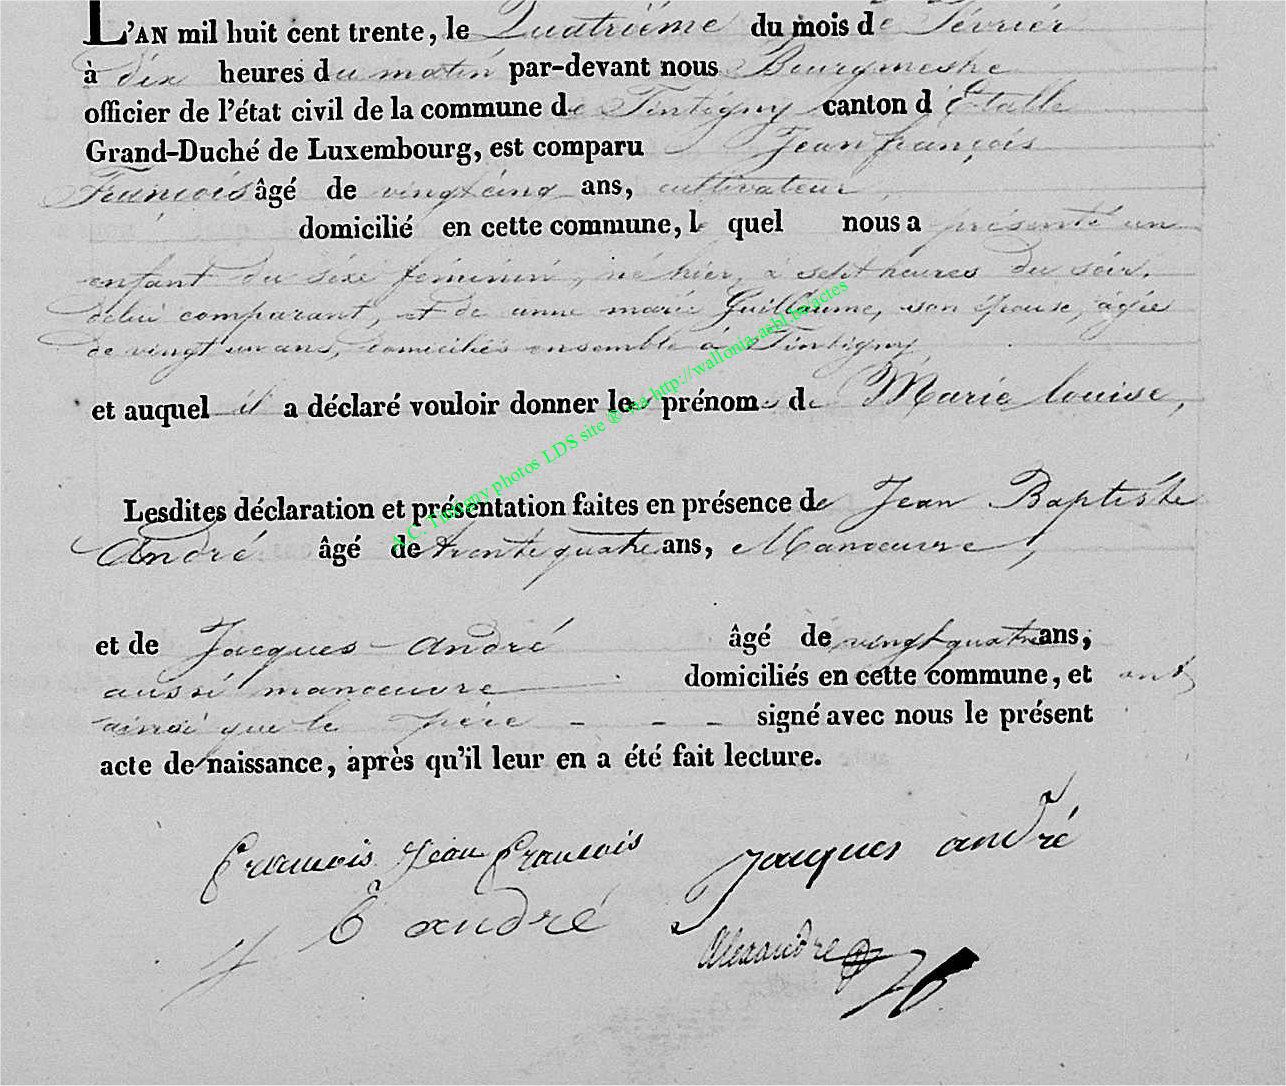 L'AN mil huit cent trente, le Quatrième du mois de Février
à dix heures du matin par-devant nous Bourgmestre
officier de l'état civil de la commune de Tintigny canton d'Etalle
Grand-Duché de Luxembourg, est comparu Jean françois
François âgé de vingt cinq ans, cultivateur
domicilié en cette commune, lequel nous a présenté un
enfant du sexe féminin, né hier, à sept heures du soir,
de lui comparant, et de anne marie Guillaume, son épouse, agée
de vingt un ans, domiciliés ensemble à Tintigny
et auquel il a déclaré vouloir donner les prénoms de Marie louise,
Lesdites déclaration et présentation faites en présence de Jean Baptiste
André âgé de trente quatre ans, Manoeuvre,
et de Jacques André âgé de vingt quatre ans,
aussi manoeuvre domiciliés en cette commune, et ont
ainsi que le père - - - signé avec nous le présent
acte de naissance, après qu'il leur en a été fait lecture.
francois Jean francois jacques andré
j b andré
Alexandre
A.C. Tintigny photos LDS site ® via http://wallonia-asbl.be/actes